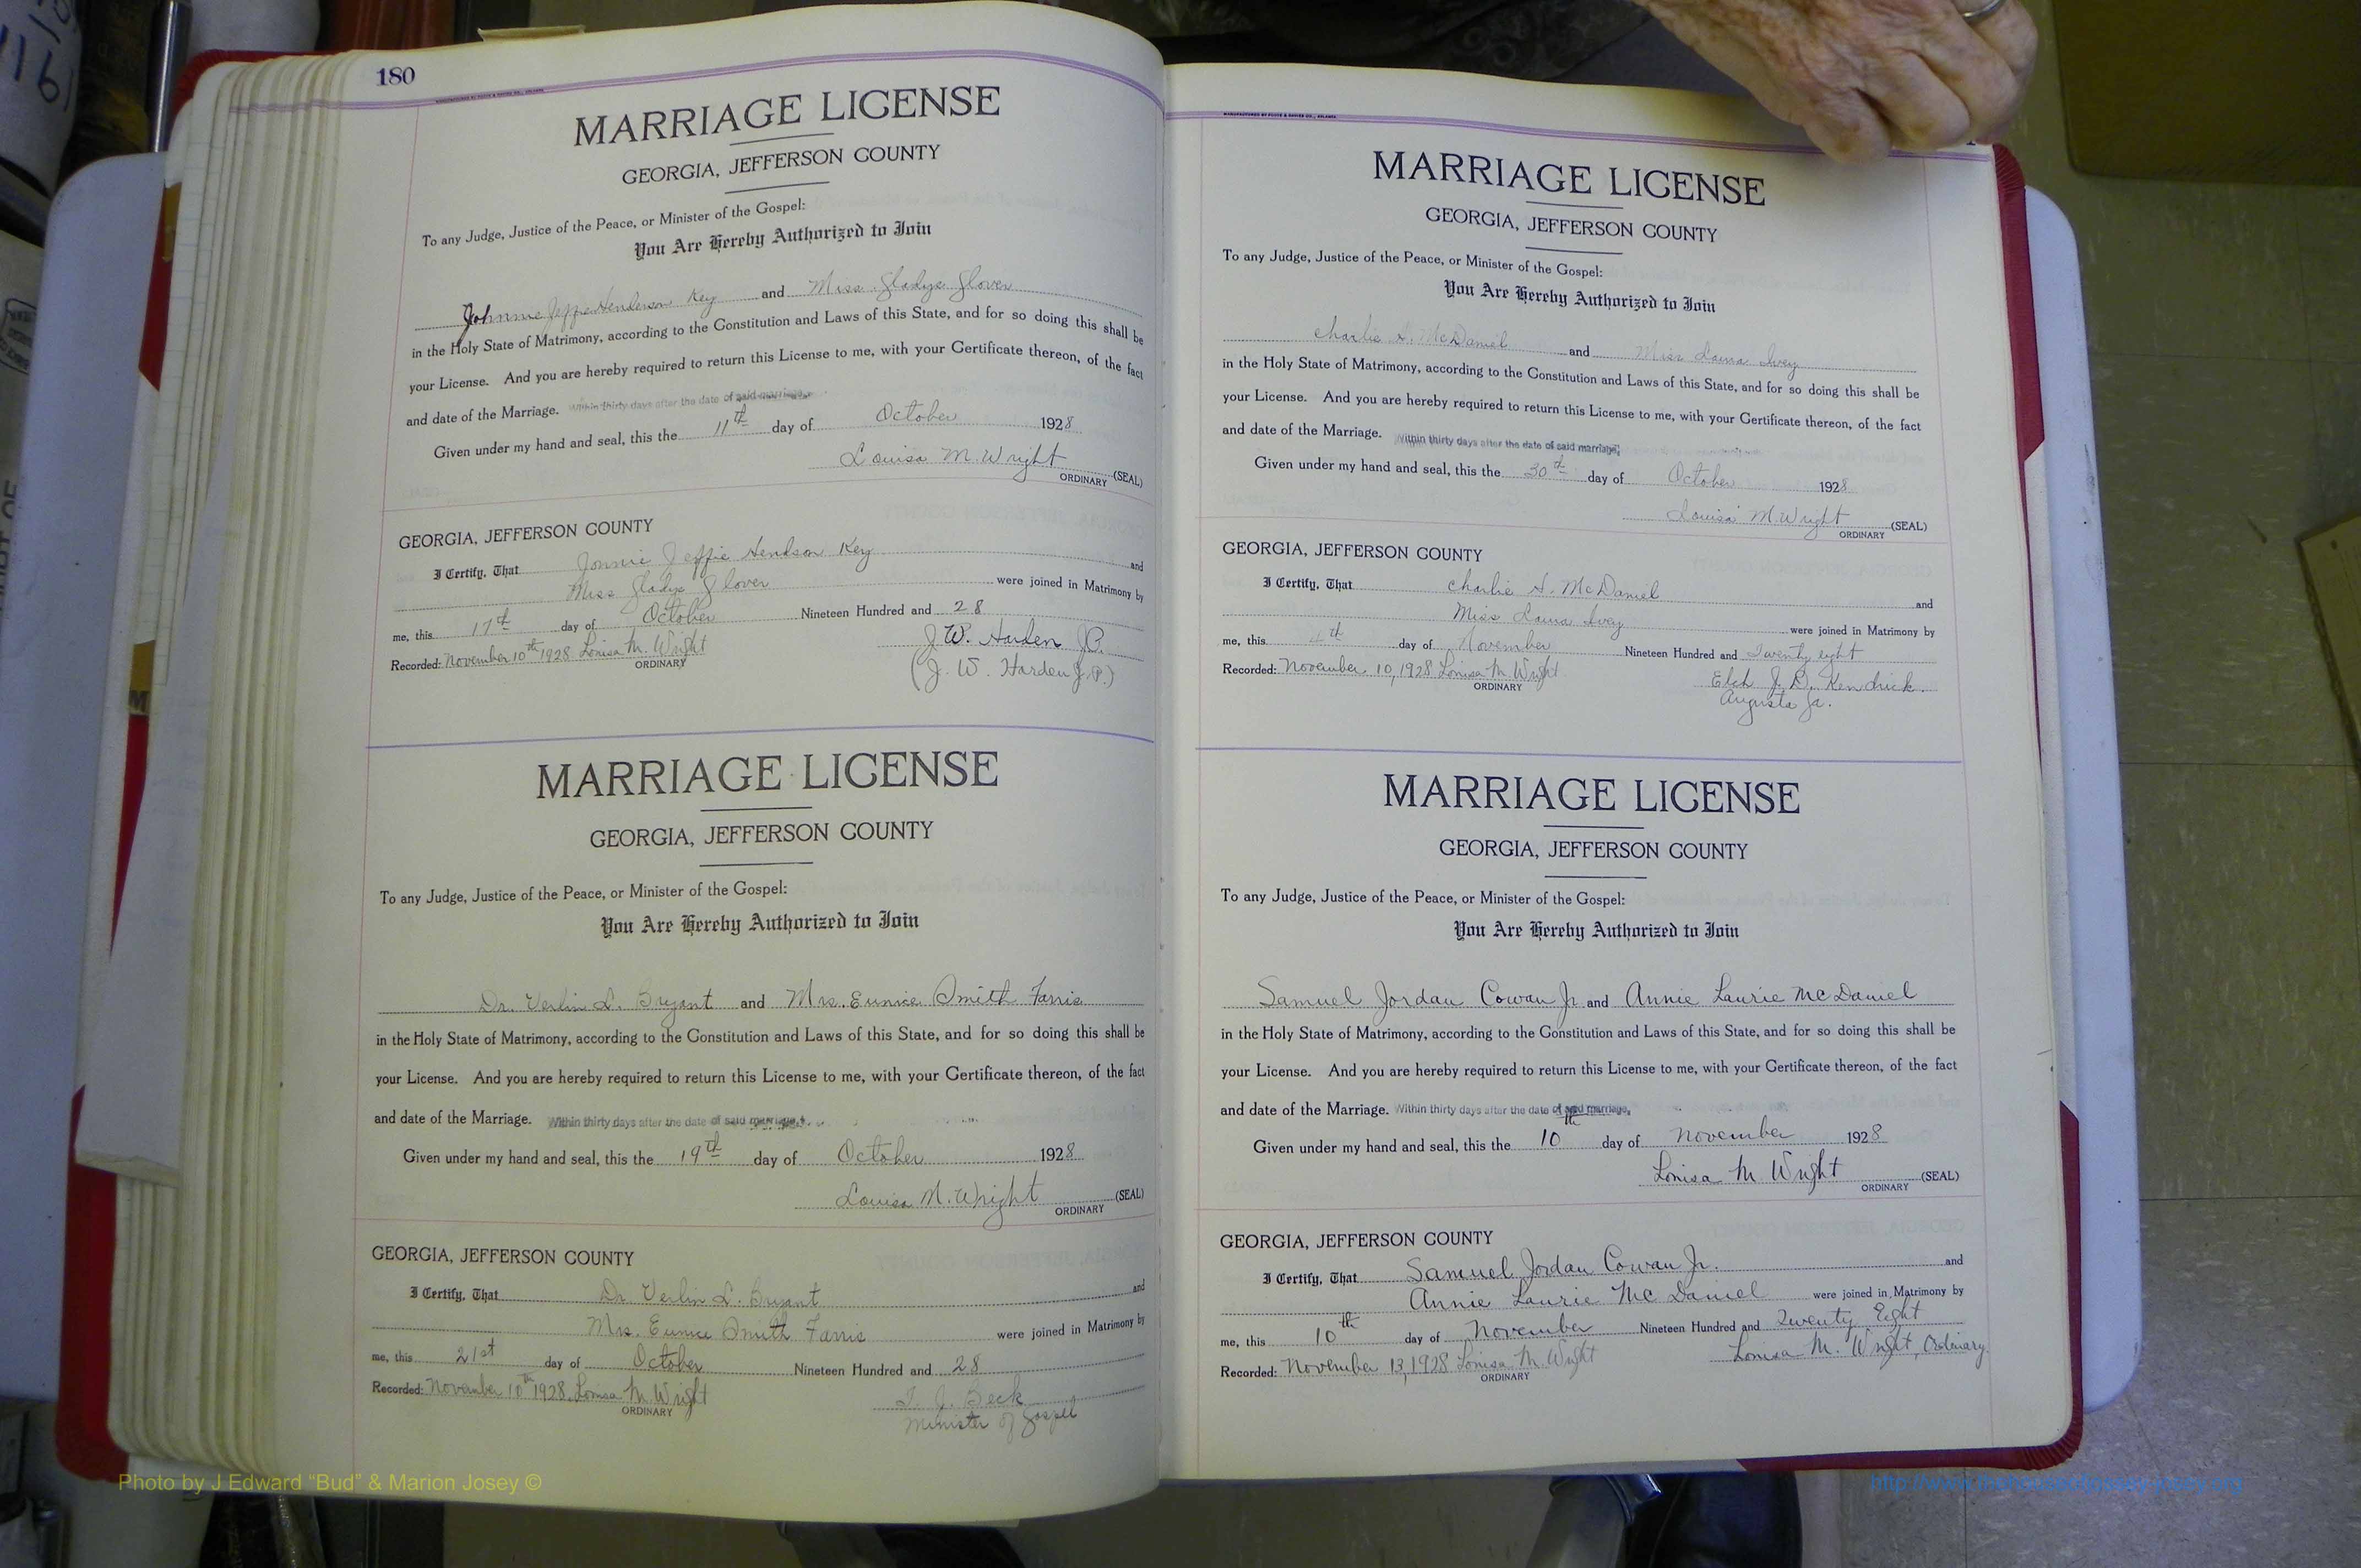 180
MARRIAGE LICENSE
GEORGIA, JEFFERSON COUNTY
To any Judge, Justice of the Peace, or Minister of the Gospel:
You Are Hereby Authorized to Join
Johnnie Jeffie Henderson Key and Miss Gladys Glover
in the Holy State of Matrimony, according to the Constitution and Laws of this State, and for so doing this shall be
your License. And you are hereby required to return this License to me, with your Certificate thereon, of the fact
and date of the Marriage. Within thirty days after the date of said marriage.
Given under my hand and seal, this the 11th day of October 1928
Louisa M. Wright (SEAL)
ORDINARY
GEORGIA, JEFFERSON COUNTY
I Certify, That Jonnie Jeffie Hendson Key and
Miss Gladys Glover were joined in Matrimony by
me, this 17th day of October Nineteen Hundred and 28
Recorded: November 10th 1928 Louisa M. Wright J. W. Harden J.P.
ORDINARY (J. W. Harden J.P.)
MARRIAGE LICENSE
GEORGIA, JEFFERSON COUNTY
To any Judge, Justice of the Peace, or Minister of the Gospel:
You Are Hereby Authorized to Join
Dr. Verlin L. Bryant and Mrs. Eunice Smith Farris
in the Holy State of Matrimony, according to the Constitution and Laws of this State, and for so doing this shall be
your License. And you are hereby required to return this License to me, with your Certificate thereon, of the fact
and date of the Marriage. Within thirty days after the date of said marriage.
Given under my hand and seal, this the 19th day of October 1928
Louisa M. Wright (SEAL)
ORDINARY
GEORGIA, JEFFERSON COUNTY
I Certify, That Dr. Verlin L. Bryant and
Mrs. Eunice Smith Farris were joined in Matrimony by
me, this 21st day of October Nineteen Hundred and 28
Recorded: November 10th 1928 Louisa M. Wright T. J. Beck
ORDINARY Minister of Gospel
MARRIAGE LICENSE
GEORGIA, JEFFERSON COUNTY
To any Judge, Justice of the Peace, or Minister of the Gospel:
You Are Hereby Authorized to Join
Charlie S. McDaniel and Miss Laura Ivey
in the Holy State of Matrimony, according to the Constitution and Laws of this State, and for so doing this shall be
your License. And you are hereby required to return this License to me, with your Certificate thereon, of the fact
and date of the Marriage. Within thirty days after the date of said marriage,
Given under my hand and seal, this the 30th day of October 1928
Louisa M. Wright (SEAL)
ORDINARY
GEORGIA, JEFFERSON COUNTY
I Certify, That Charlie S. McDaniel and
Miss Laura Ivey were joined in Matrimony by
me, this 4th day of November Nineteen Hundred and Twenty eight
Recorded: November 10, 1928 Louisa M. Wright J. D. Kendrick.
ORDINARY Augusta Ga.
MARRIAGE LICENSE
GEORGIA, JEFFERSON COUNTY
To any Judge, Justice of the Peace, or Minister of the Gospel:
You Are Hereby Authorized to Join
Samuel Jordan Cowan Jr. and Annie Laurie McDaniel
in the Holy State of Matrimony, according to the Constitution and Laws of this State, and for so doing this shall be
your License. And you are hereby required to return this License to me, with your Certificate thereon, of the fact
and date of the Marriage. Within thirty days after the date of said marriage,
Given under my hand and seal, this the 10th day of November 1928
Louisa M. Wright (SEAL)
ORDINARY
GEORGIA, JEFFERSON COUNTY
I Certify, That Samuel Jordan Cowan Jr. and
Annie Laurie McDaniel were joined in Matrimony by
me, this 10th day of November Nineteen Hundred and Twenty Eight
Recorded: November 13, 1928 Louisa M. Wright Louisa M. Wright, Ordinary
ORDINARY
Photo by J Edward “Bud” & Marion Josey ©